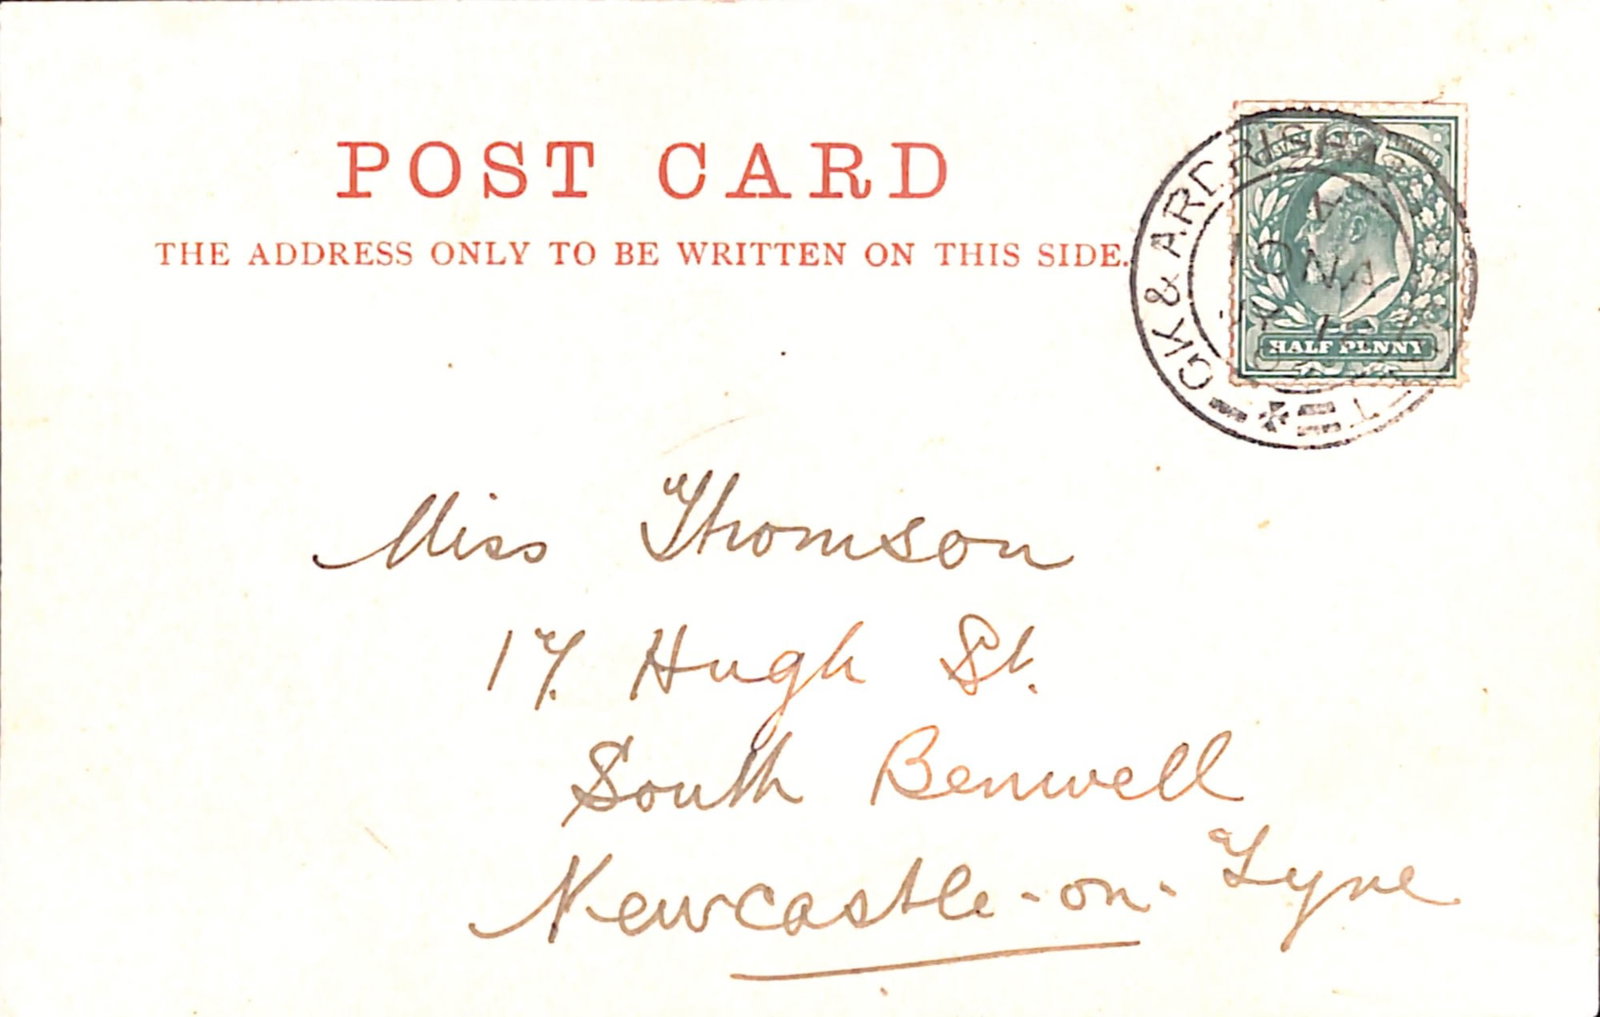 POST CARD
THE ADDRESS ONLY TO BE WRITTEN ON THIS SIDE.
GK & ARDRISHAIG
HALF PENNY
Miss Thomson
17. Hugh St.
South Benwell
Newcastle-on-Tyne